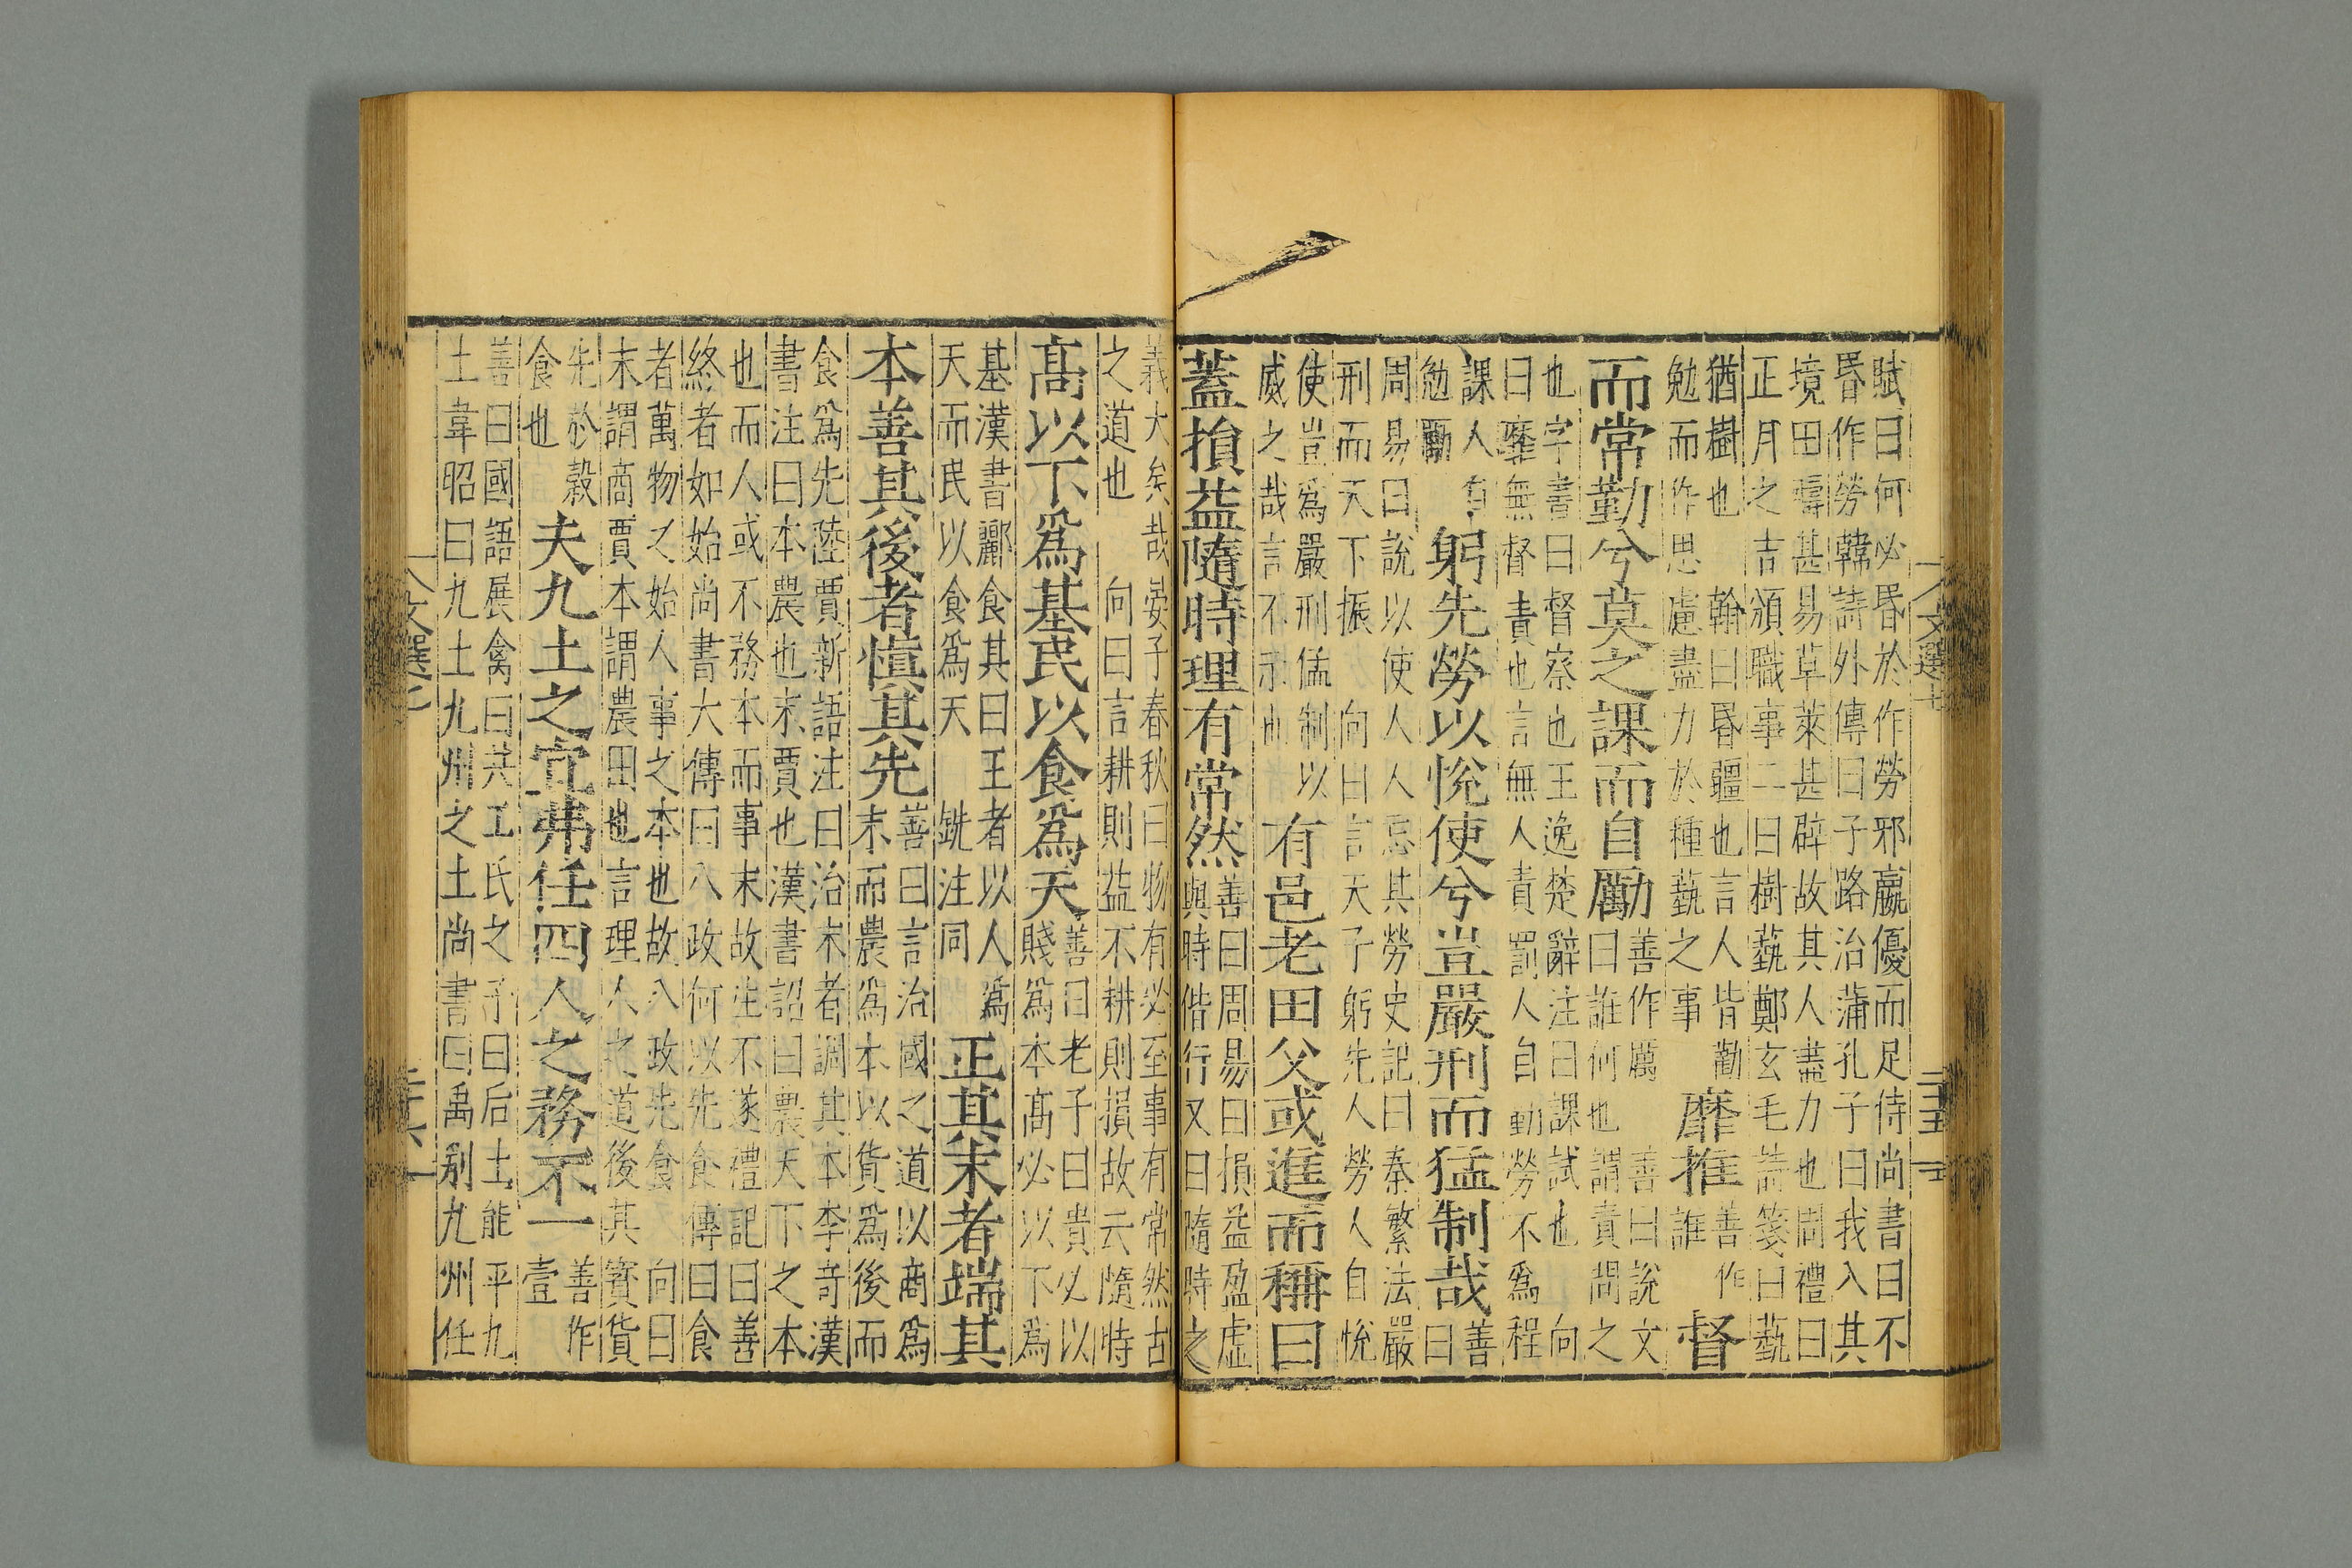 賦曰何必昬於作勞邪嬴優而足恃尚書曰不
昬作勞韓詩外傳曰子路治蒲孔子曰我入其
境田疇甚易草萊甚辟故其人盡力也周禮曰
正月之吉頒職事二曰樹蓺鄭玄毛詩箋曰蓺
猶樹也 翰曰昬疆也言人皆勸
勉而作思慮盡力於種蓺之事
靡推善作誰督
而常勤兮莫之課而自勵善作厲
曰誰何也謂責問之
善曰說文
也字書曰督察也王逸楚辭注曰課試也 向
曰靡無督責也言無人責罰人自動勞不爲程
課人有
勉勵
躬先勞以悅使兮豈嚴刑而猛制哉善
曰
周易曰說以使人人忘其勞史記曰秦繁法嚴
刑而天下振 向曰言天子躬先人勞人自悅
使豈爲嚴刑猛制以
威之哉言不示也
有邑老田父或進而稱曰
蓋損益隨時理有常然善曰周易曰損益盈虛
與時偕行又曰隨時之
義大矣哉晏子春秋曰物有必至事有常然古
之道也 向曰言耕則益不耕則損故云隨時
高以下爲基民以食爲天善曰老子曰貴必以
賤爲本高必以下爲
基漢書酈食其曰王者以人爲
天而民以食爲天 銑注同
正其末者端其
本善其後者愼其先善曰言治國之道以商爲
末而農爲本以貨爲後而
食爲先陸賈新語注曰治末者調其本李奇漢
書注曰本農也末賈也漢書詔曰農天下之本
也而人或不務本而事末故生不遂禮記曰善
終者如始尚書大傳曰八政何以先食傳曰食
者萬物之始人事之本也故八政先食 向曰
末謂商賈本謂農田也言理人之道後其寳貨
先於穀
食也
夫九土之宜弗任四人之務不一善作
壹
善曰國語展禽曰共工氏之子曰后土能平九
土韋昭曰九土九州之土尚書曰禹别九州任
文選七
文選七